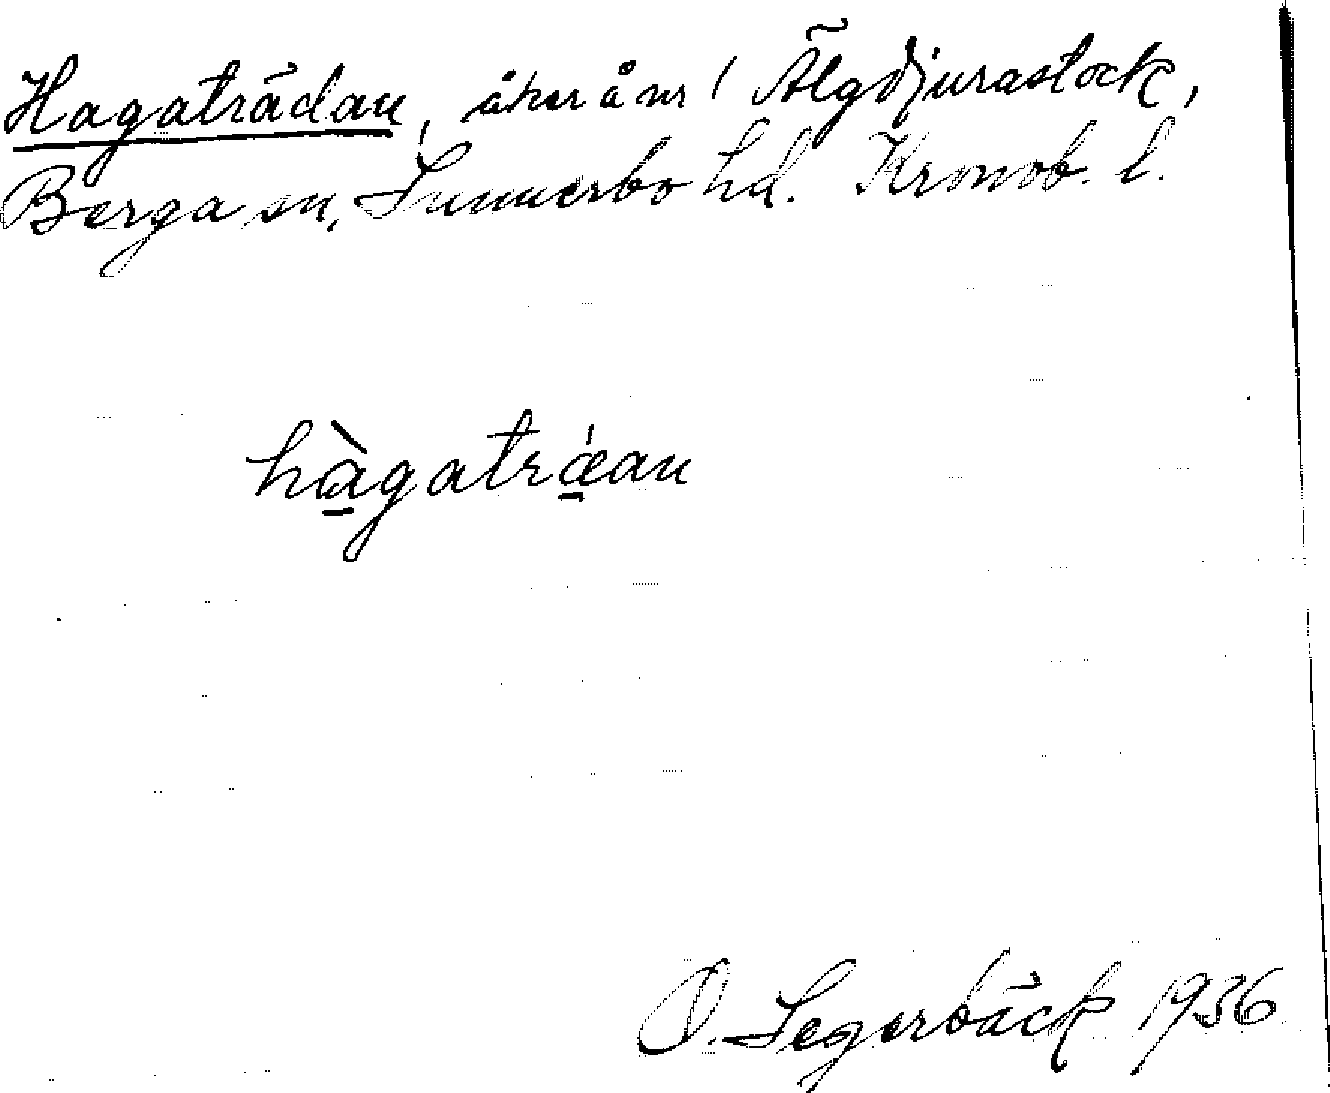 Hagaträdan, åker å nr 1 Älgdjurastock,
Berga sn, Sunnerbo hd. Kronob. l.
hàgatrǽan
O. Segerbäck 1936